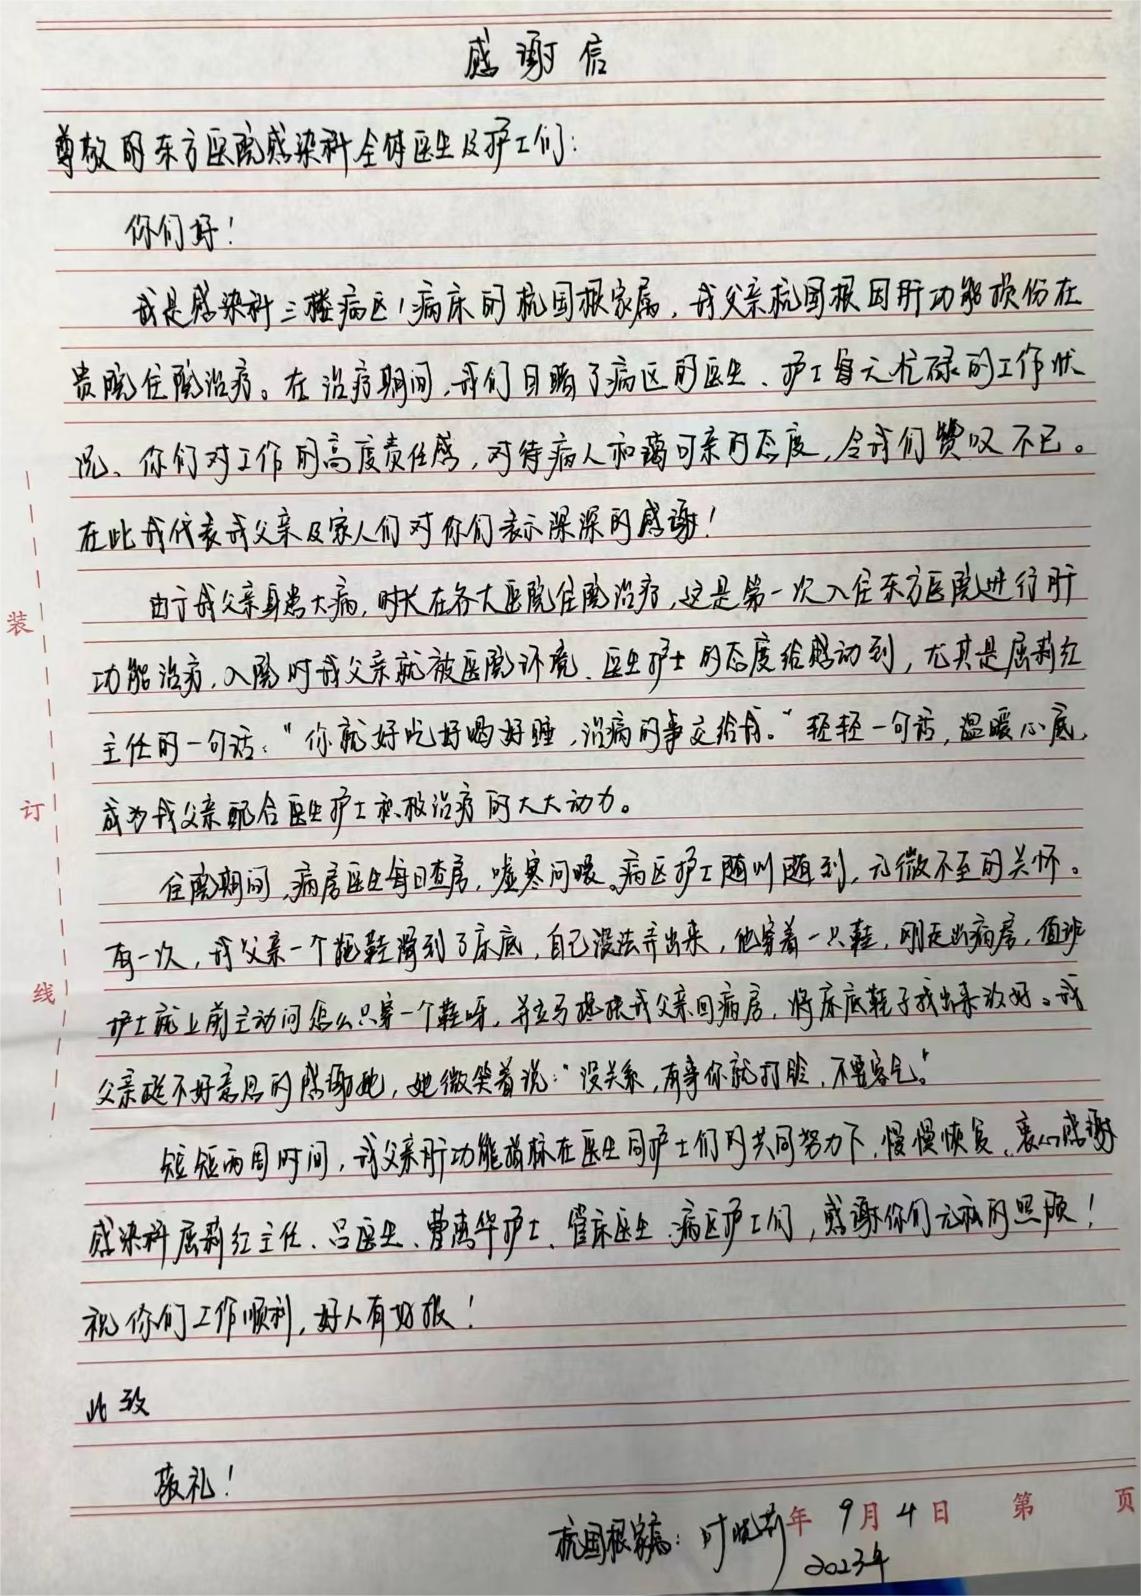 感谢信
尊敬的东方医院感染科全体医生及护工们：
你们好！
我是感染科三楼病区1病床的杭国根家属，我父亲杭国根因肝功能损伤在
贵院住院治疗。在治疗期间，我们目睹了病区的医生、护工每天忙碌的工作状
况、你们对工作的高度责任感，对待病人和蔼可亲的态度，令我们赞叹不已。
在此我代表我父亲及家人们对你们表示深深的感谢！
由于我父亲身患大病，时长在各大医院住院治疗，这是第一次入住东方医院进行肝
功能治疗，入院时我父亲就被医院环境、医生护士的态度给感动到，尤其是屈莉红
主任的一句话："你就好吃好喝好睡，治病的事交给我。"轻轻一句话，温暖心底，
成为我父亲配合医生护士积极治疗的大大动力。
住院期间，病房医生每日查房，嘘寒问暖。病区护工随叫随到，无微不至的关怀。
有一次，我父亲一个拖鞋滑到了床底，自己没法弄出来，他穿着一只鞋，刚走出病房，值班
护士就上前主动问怎么只穿一个鞋呀，并立马搀扶我父亲回病房，将床底鞋子找出来放好。我
父亲挺不好意思的感谢她，她微笑着说："没关系，有事你就打铃，不要客气。"
短短两周时间，我父亲肝功能指标在医生同护士们的共同努力下，慢慢恢复，衷心感谢
感染科屈莉红主任、吕医生、曹燕华护士、管床医生、病区护工们，感谢你们无私的照顾！
祝你们工作顺利，好人有好报！
此致
敬礼！
杭国根家属：时 年9月4日 第 页
2023年
装
订
线